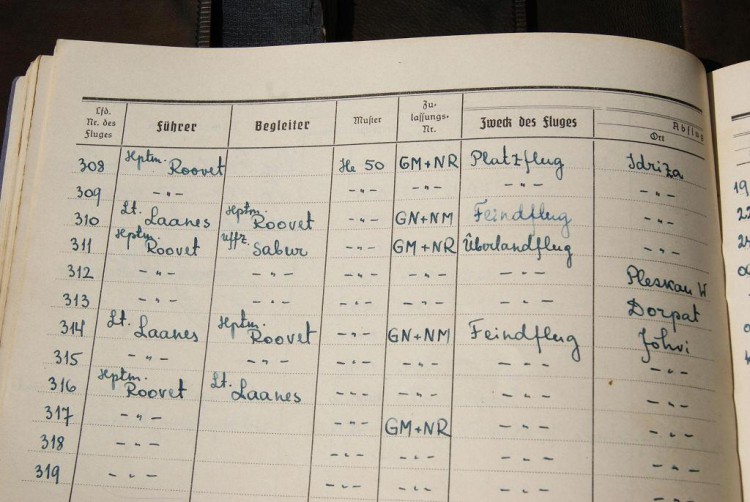 Lfd. Nr. des Fluges Führer Begleiter Muster Zulassungs-Nr. Zweck des Fluges Abflug Ort
308 Hptm. Roovet He 50 GM+NR Platzflug Idriza
309 -"- -"- -"- -"-
310 Lt. Laanes Hptm. Roovet -"- GN+NM Feindflug -"-
311 Hptm. Roovet Uffz. Sabur -"- GM+NR Überlandflug -"-
312 -"- -"- -"- -"- -"- Pleskau W
313 -"- -"- -"- -"- -"- Dorpat
314 Lt. Laanes Hptm. Roovet -"- GN+NM Feindflug Jöhvi
315 -"- -"- -"- -"- -"-
316 Hptm. Roovet Lt. Laanes -"- -"- -"- -"-
317 -"- -"- GM+NR -"- -"-
318 -"- -"- -"- -"- -"-
319 -"- -"- -"- -"- -"-
19
22